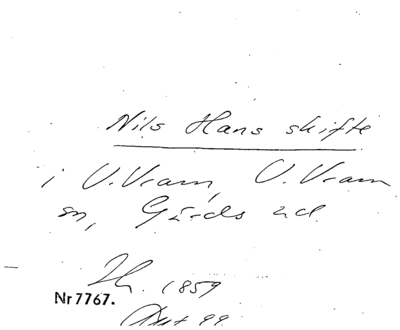 Nils Hans skifte
i V. Vram, V. Vram
sn, Gärds hd.
1859
Nr 7767.